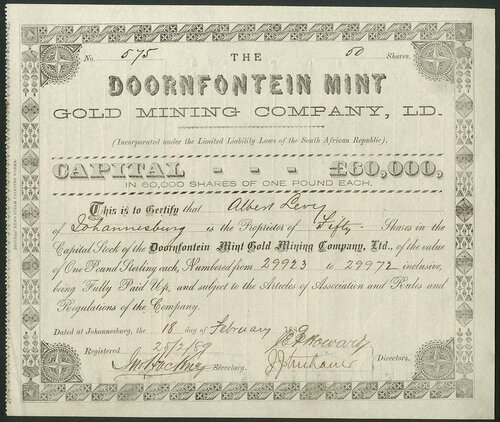 No. 575 THE 50 Shares.
DOORNFONTEIN MINT
GOLD MINING COMPANY, LD.
(Incorporated under the Limited Liability Laws of the South African Republic).
CAPITAL - - - £60,000,
IN 60,000 SHARES OF ONE POUND EACH.
This is to Certify that Albert Levy
of Johannesburg is the Proprietor of Fifty Shares in the
Capital Stock of the Doornfontein Mint Gold Mining Company, Ltd., of the value
of One Pound Sterling each, Numbered from 29923 to 29972 inclusive,
being Fully Paid Up, and subject to the Articles of Association and Rules and
Regulations of the Company.
Dated at Johannesburg, the 18 day of February 1889
Registered 25/2/89
Secretary.
Directors.